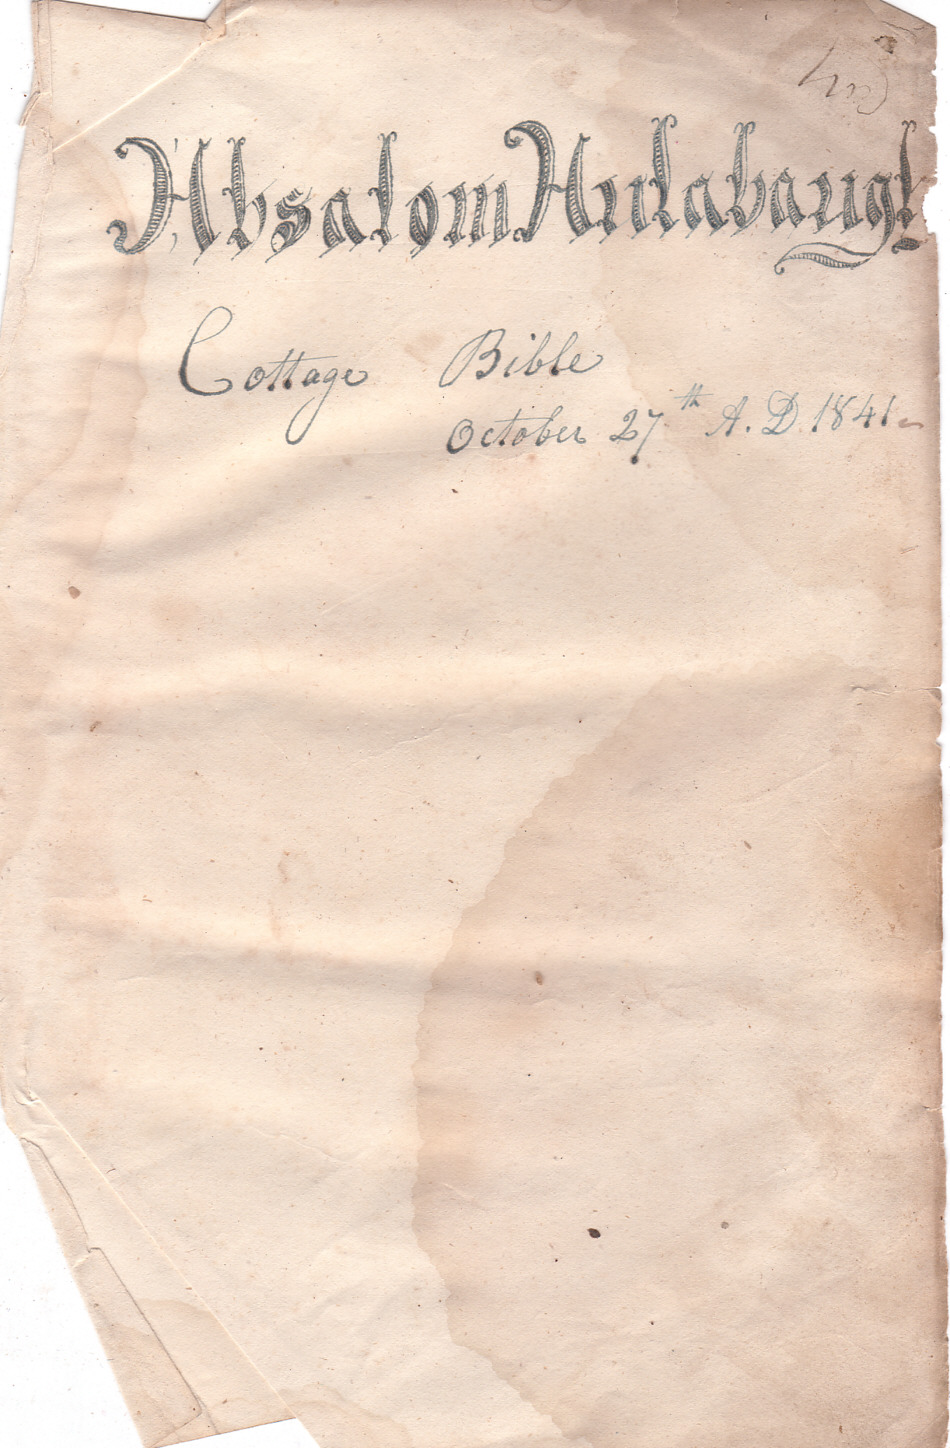 Absalom Hulabaugh
Cottage Bible
October 27th A.D. 1841